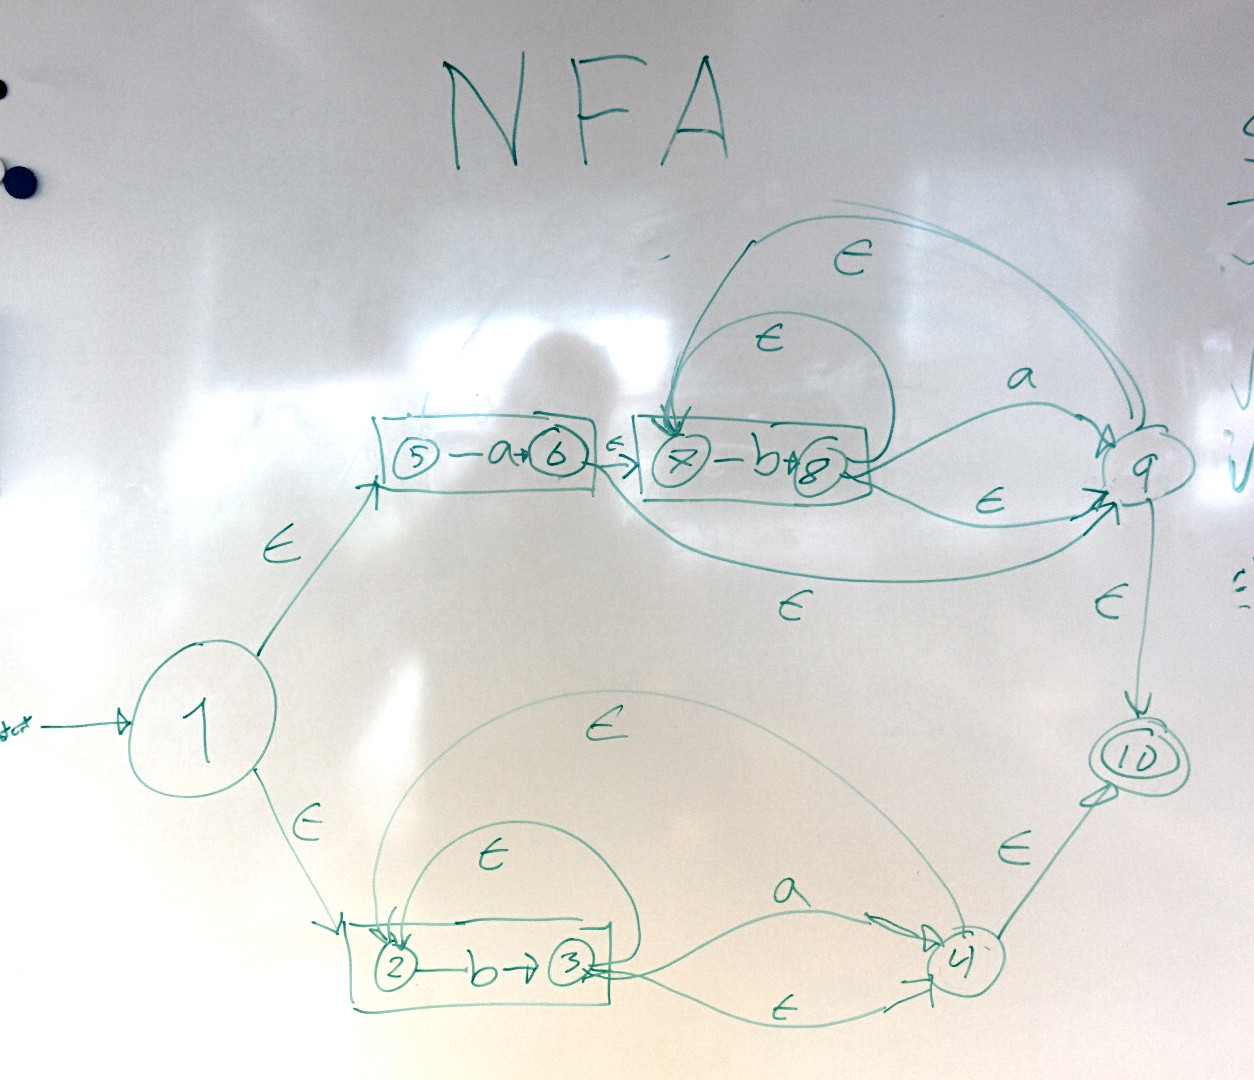 NFA
ϵ
ϵ
a
5 a 6 ϵ 7 b 8 9
ϵ
ϵ
ϵ
ϵ
1
10
ϵ
ϵ
ϵ
ϵ
a
2 b 3 4
ϵ